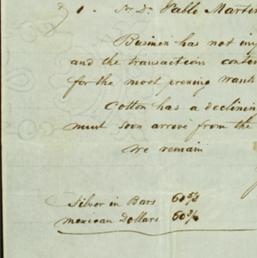 1. Sr. Dn. Pablo Martin
Business has not im
and the transactions con
for the most pressing want
Cotton has a declinin
must soon arrive from the
We remain
Silver in Bars 60 5/8
Mexican Dollars 60 3/8